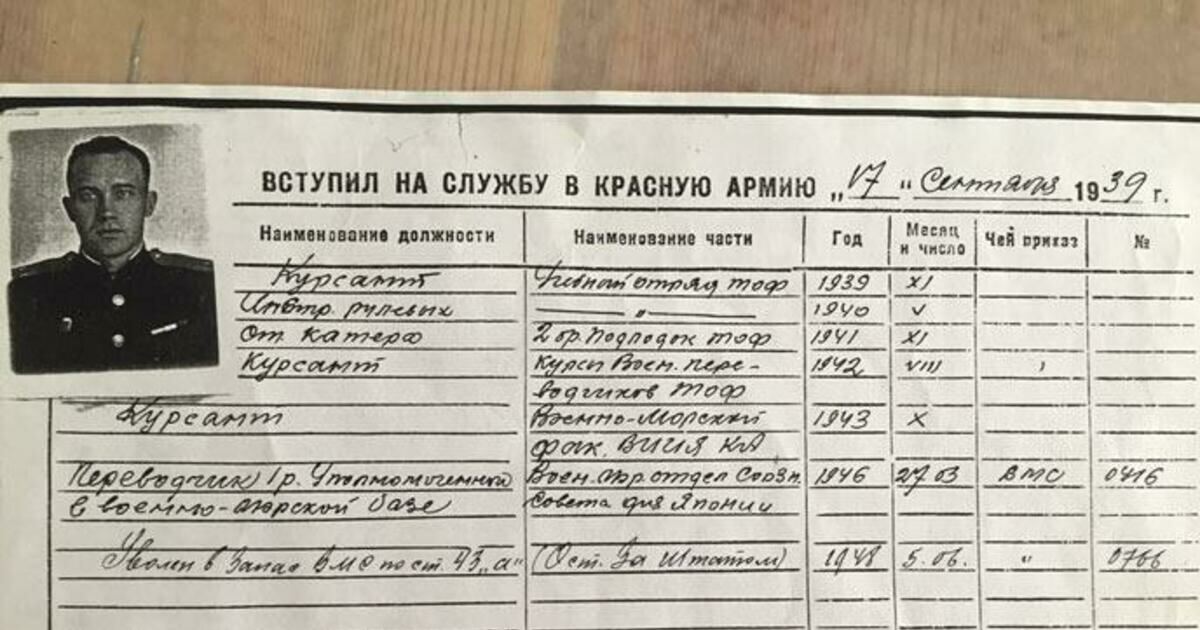 ВСТУПИЛ НА СЛУЖБУ В КРАСНУЮ АРМИЮ „17" Сентября 1939 г.
Наименование должности Наименование части Год Месяц и число Чей приказ №
Курсант Учебный отряд ТОФ 1939 XI
Инстр. рулевых — „ — 1940 V
Ст. катера 2 бр. Подлодок ТОФ 1941 XI
Курсант Курсы Воен. пере- 1942 VIII
водчиков ТОФ
Курсант Военно-Морской 1943 X
фак. ВИИЯ КА
Переводчик 1 р. Воен. мор отдел Союзн. 1946 27 03 ВМС 0416
в военно-морской базе Совета для Японии
Уволен в Запас ВМС по ст. 43 „а" (Ост. За Штатом) 1948 5.06. " 0766